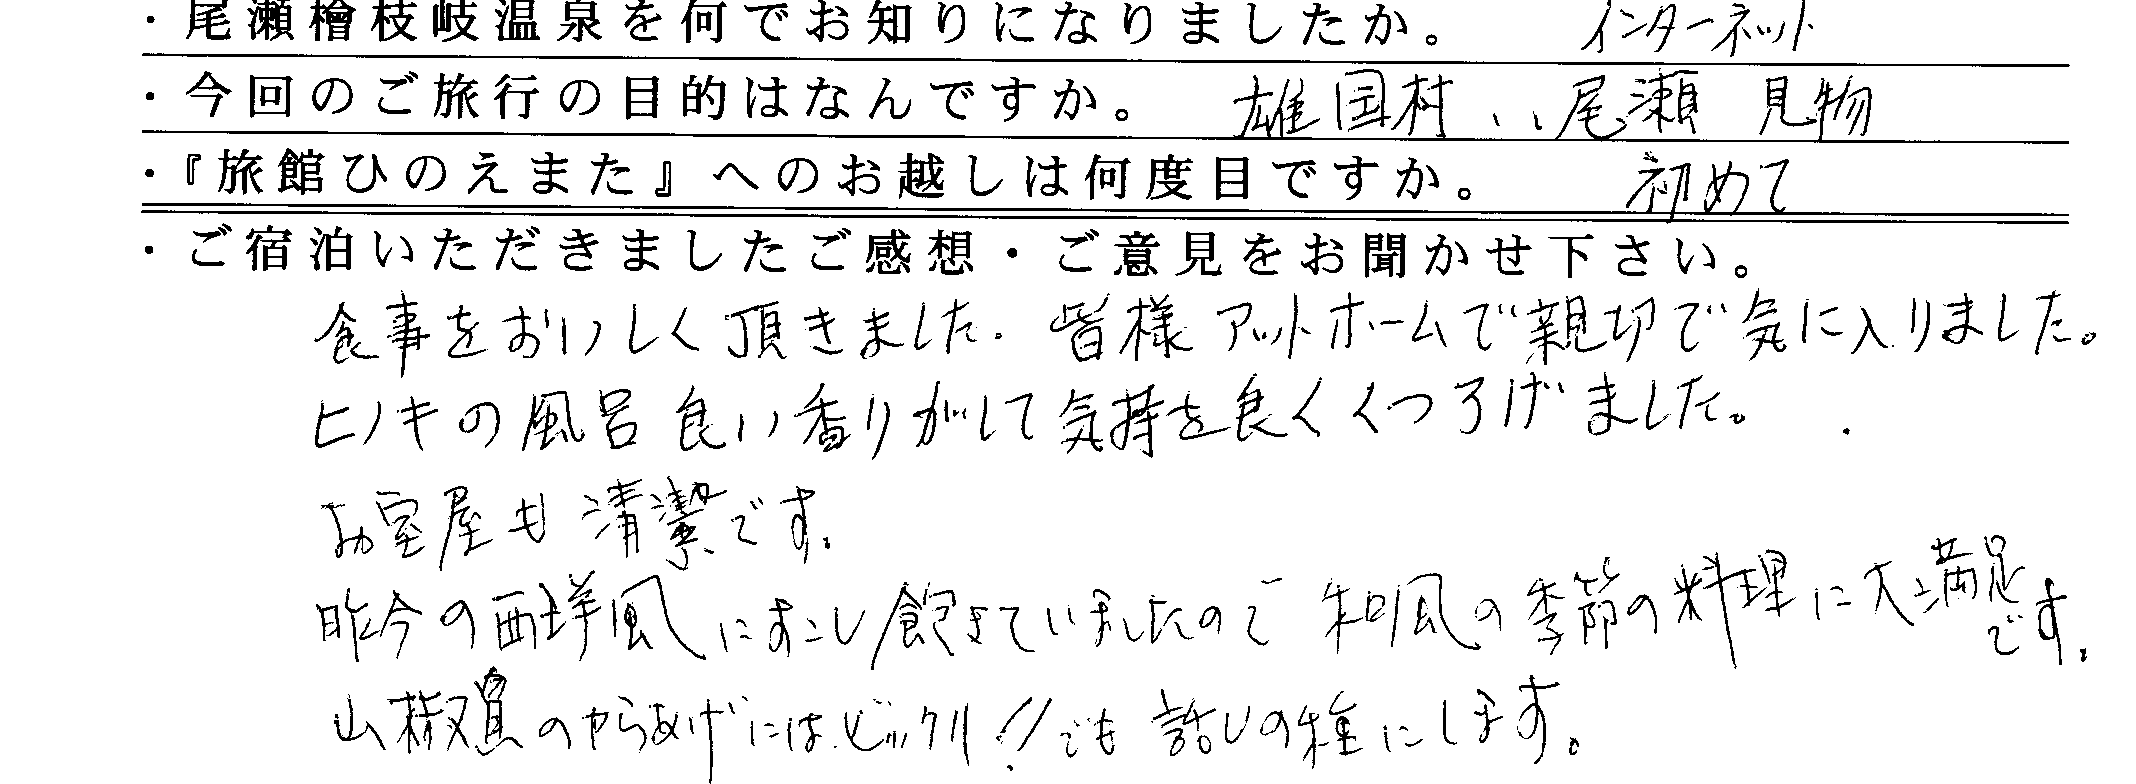 ・尾瀬檜枝岐温泉を何でお知りになりましたか。 インターネット
・今回のご旅行の目的はなんですか。 雄国村、、尾瀬 見物
・『旅館ひのえまた』へのお越しは何度目ですか。 初めて
・ご宿泊いただきましたご感想・ご意見をお聞かせ下さい。
食事をおいしく頂きました。皆様アットホームで親切で気に入りました。
ヒノキの風呂良い香りがして気持を良くくつろげました。
お室屋も清潔です。
昨今の西洋風にすこし飽きていましたので和風の季節の料理に大満足です。
山椒のからあげにはビックリ!!でも話しの種にします。